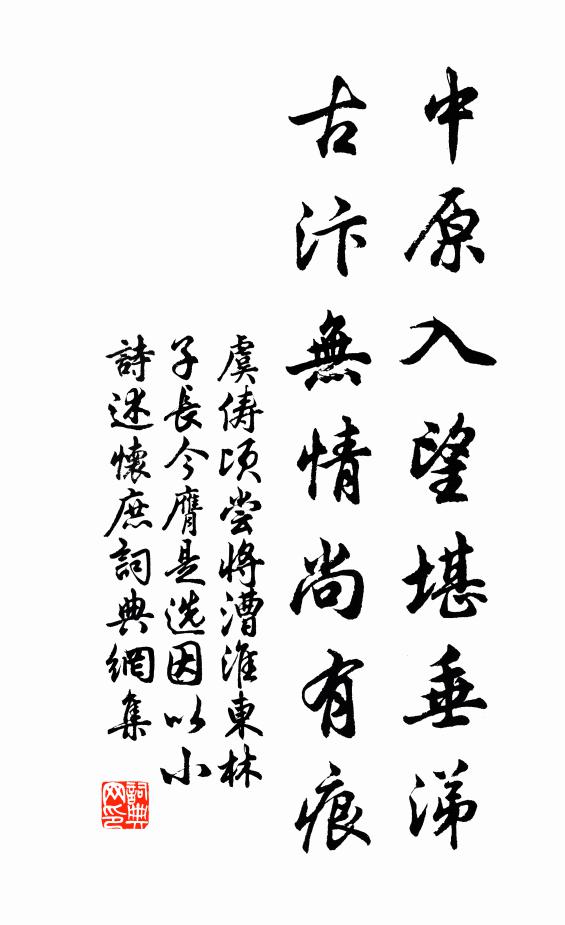 中原入望堪垂涕
古汴無情尚有痕
虞儔頃尝將漕淮東林
子長今膺是选因以小
詩述懷庶詞典網集
詞典
网印